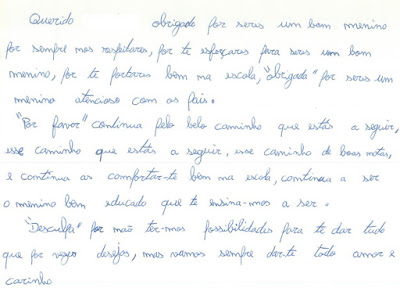 Querido obrigado por seres um bom menino
por sempre nos respeitares, por te esforçares para seres um bom
menino, por te portares bem na escola, "obrigada" por seres um
menino atencioso com os pais.
"Por favor" continua pelo belo caminho que estás a seguir,
esse caminho que estás a seguir, esse caminho de boas notas,
e continua as comfortar-te bem na escola, continua a ser
o menino bem educado que te ensina-mos a ser.
"Desculpa" por não ter-mos possibilidades para te dar tudo
que por vezes desejas, mas vamos sempre dar-te todo amor e
carinho